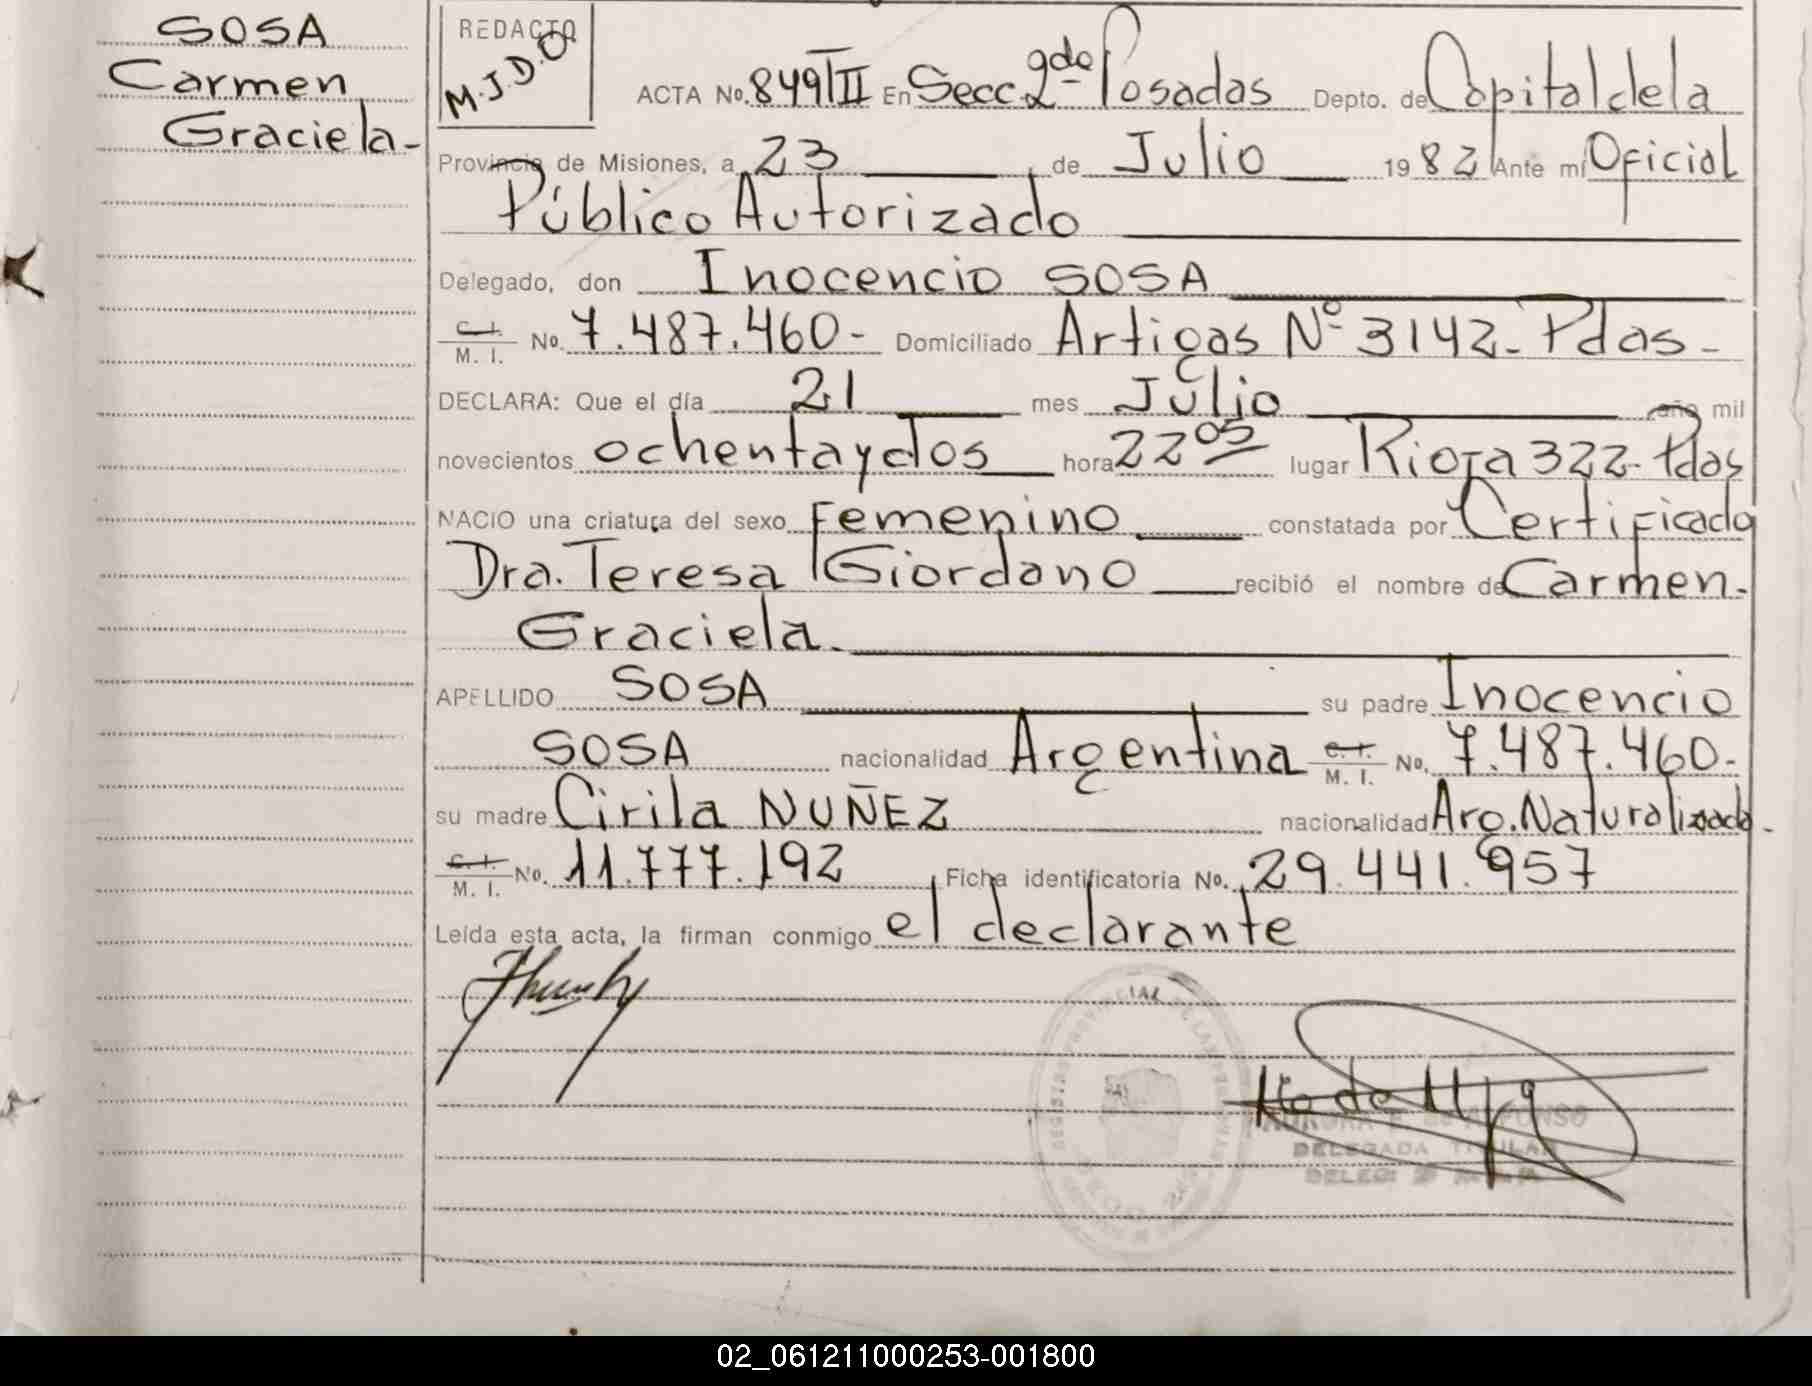 SOSA
Carmen
Graciela-
REDACTO
M.J.D.O.
ACTA No. 849/II En Secc. 2da Posadas Depto. de Capital de la
Provincia de Misiones, a 23 de Julio 1982 Ante mí Oficial
Público Autorizado
Delegado, don Inocencio SOSA
C. I. M. I. No. 7.487.460- Domiciliado Artigas Nº 3142- Pdas-
DECLARA: Que el día 21 mes Julio año mil
novecientos ochenta y dos hora 22 05 lugar Rioja 322- Pdas
NACIO una criatura del sexo Femenino constatada por Certificado
Dra. Teresa Giordano recibió el nombre de Carmen.
Graciela.
APELLIDO SOSA su padre Inocencio
SOSA nacionalidad Argentina C. I. M. I. No. 7.487.460-
su madre Cirila NUÑEZ nacionalidad Arg. Naturalizada.
C. I. M. I. No. 11.777.192 Ficha identificatoria No. 29.441.957
Leída esta acta, la firman conmigo el declarante
DELEGADA TITULAR
02_061211000253-001800